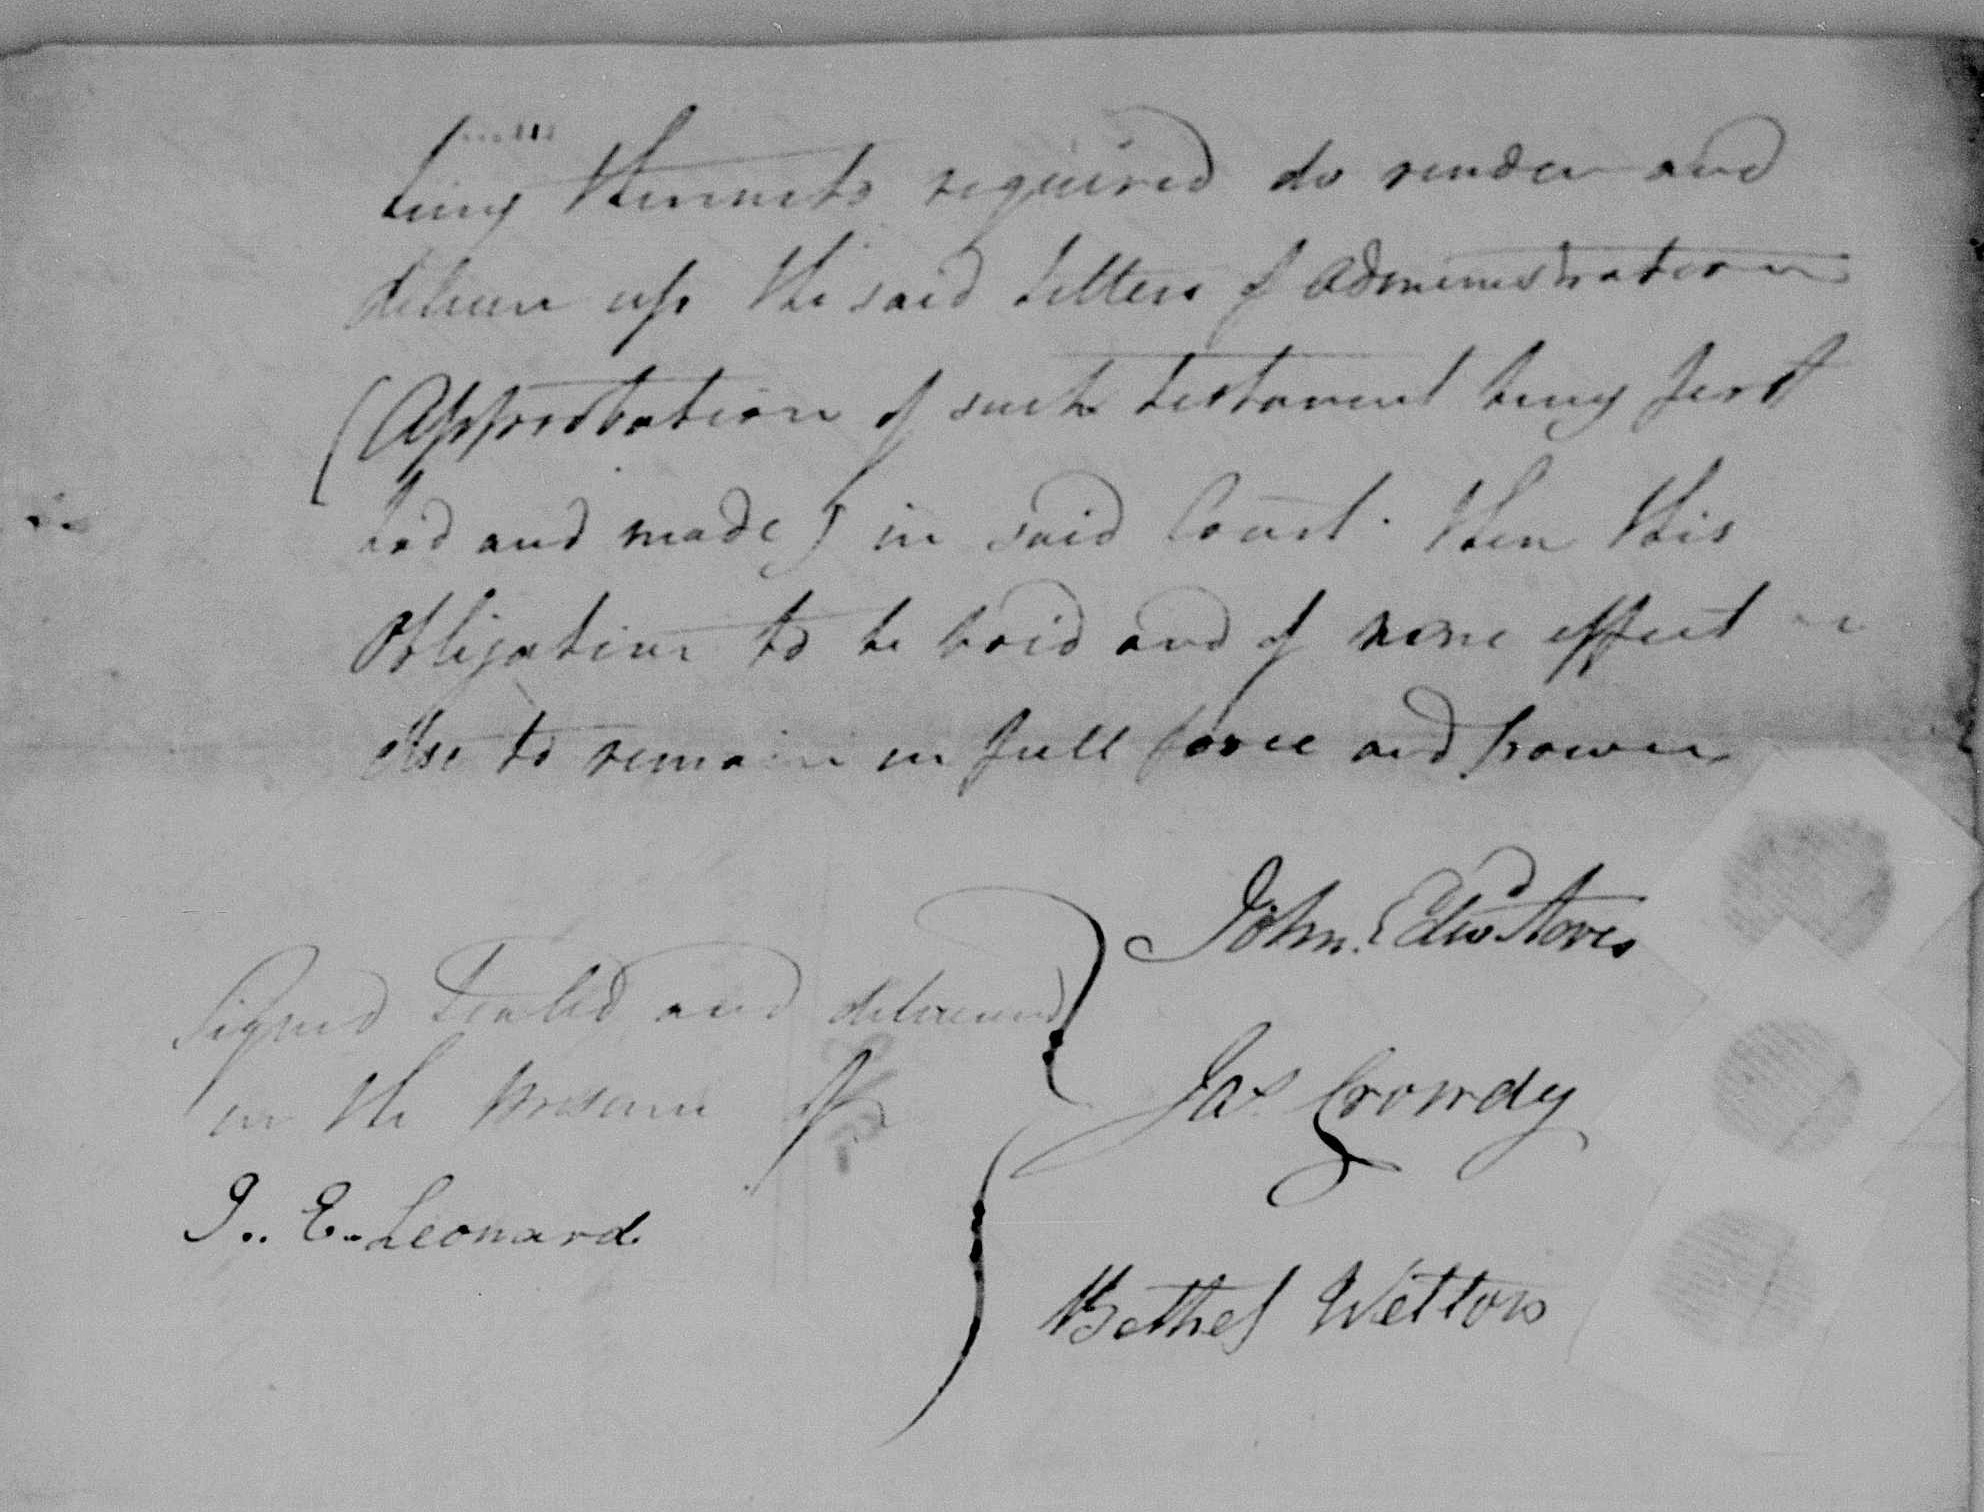 being thereunto required do render and
deliver up the said Letters of Administration
(Approbation of such testament being first
had and made) in said Court. then this
Obligation to be void and of none effect or
else to remain in full force and power
John. Edwd
Signed Sealed and delivered
in the presence of
Jas Crowdy
J.. E.. Leonard
Bethel Wetton